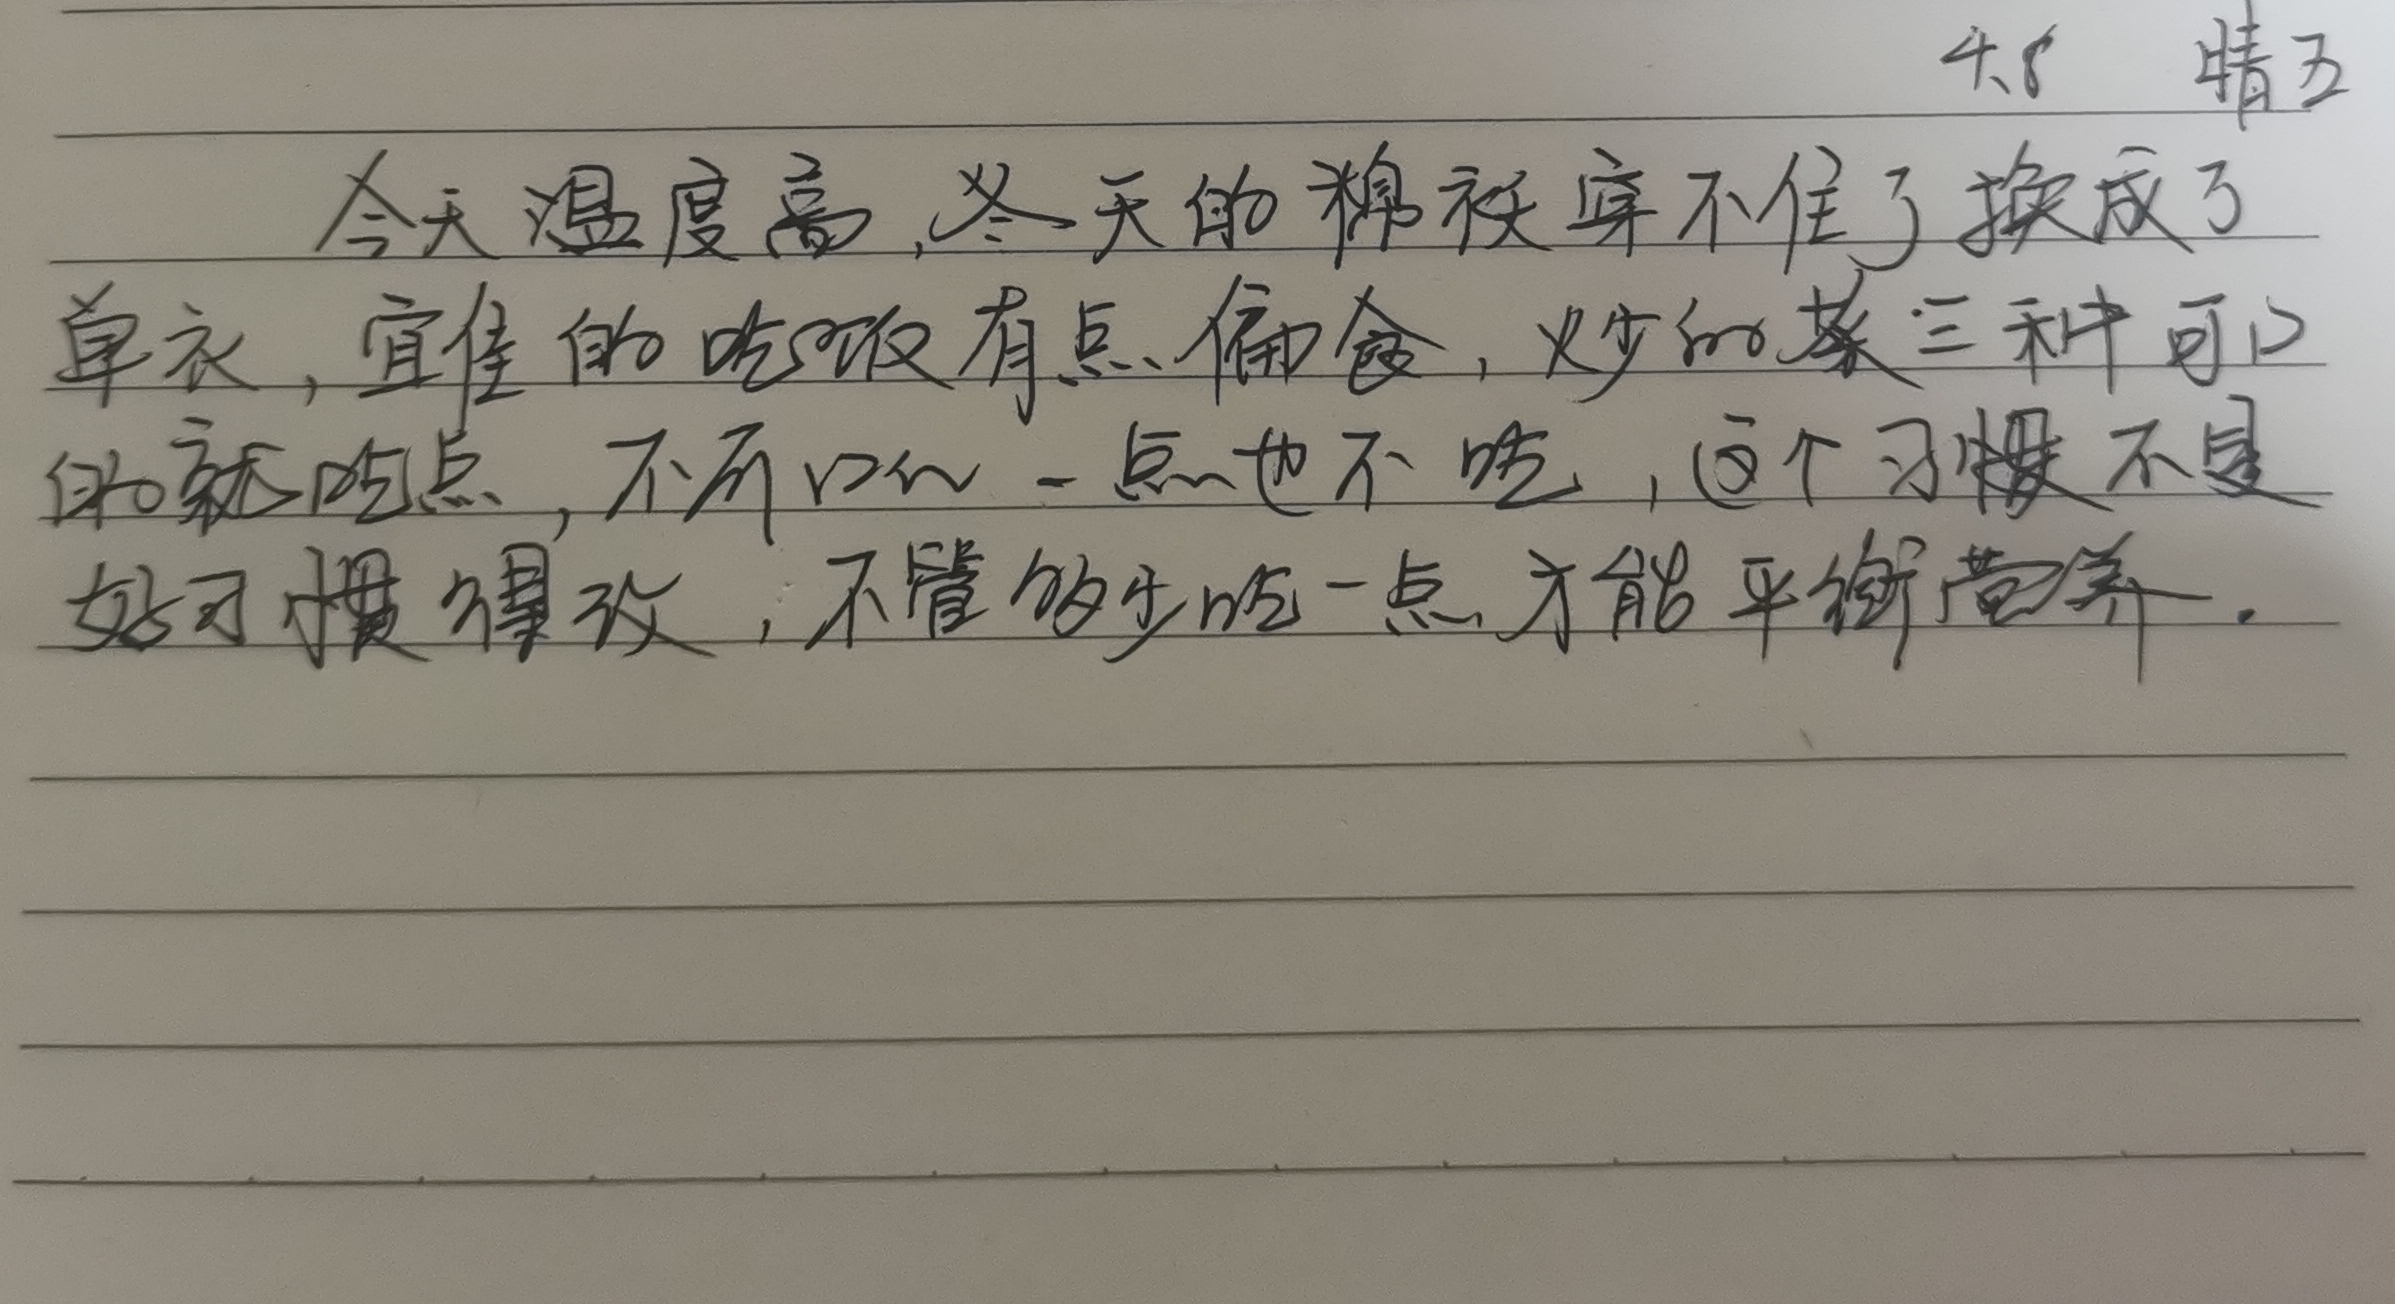 4.8 晴五
今天温度高,冬天的棉袄穿不住了换成了
单衣,宜佳的吃饭有点偏食,炒的菜三种可口
的就吃点,不可口的一点也不吃,这个习惯不是
好习惯得改,不管多少吃一点才能平衡营养.